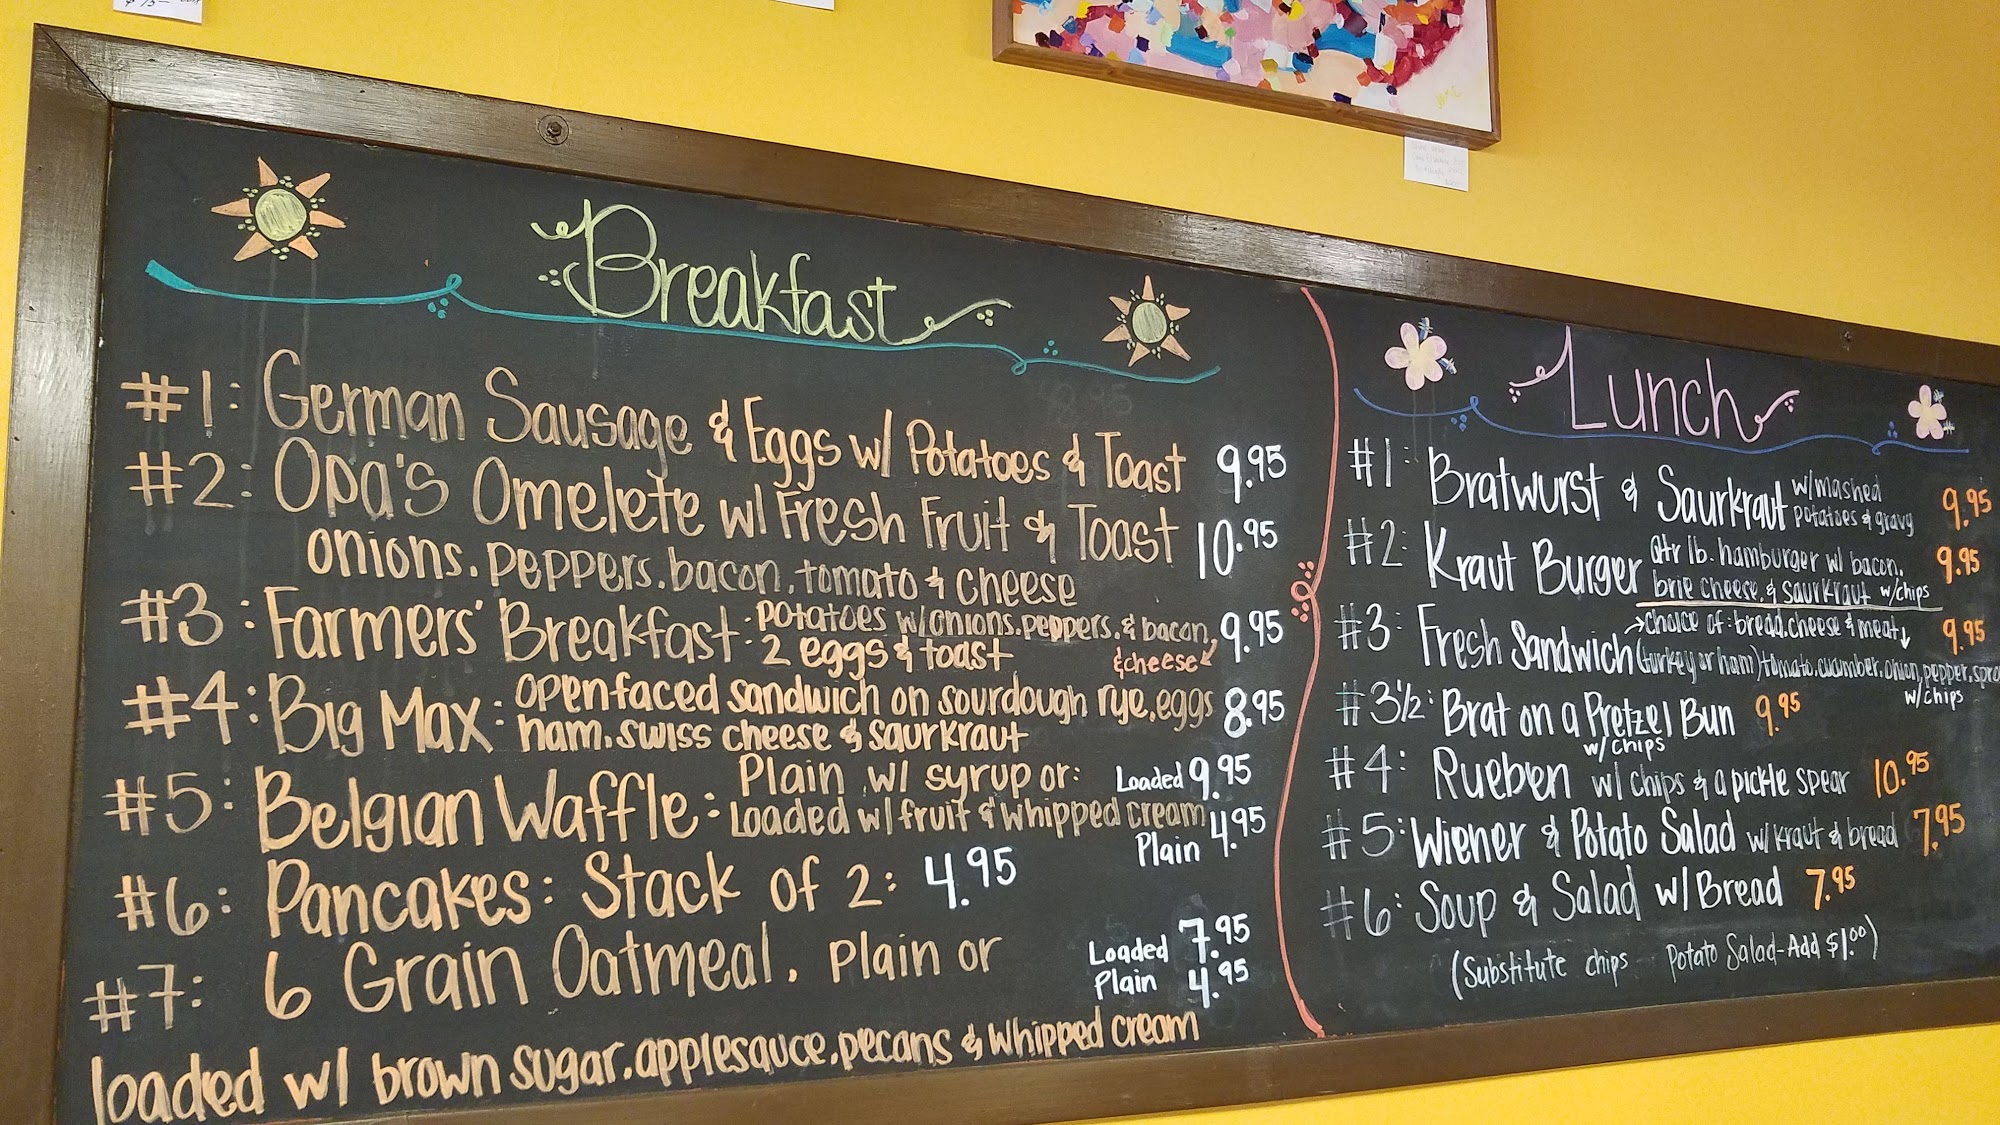 Breakfast
#1: German Sausage & Eggs w/ Potatoes & Toast 9.95
#2: Opa's Omelete w/ Fresh Fruit & Toast 10.95
onions, peppers, bacon, tomato & cheese
#3: Farmers' Breakfast: potatoes w/onions, peppers, & bacon, 9.95
2 eggs & toast &cheese
#4: Big Max: open faced sandwich on sourdough rye, eggs 8.95
ham, swiss cheese & saurkraut
#5: Belgian Waffle: Plain w/ syrup or: Loaded 9.95
Loaded w/ fruit & whipped cream
Plain 4.95
#6: Pancakes: Stack of 2: 4.95
#7: 6 Grain Oatmeal, Plain or Loaded 7.95
Plain 4.95
loaded w/ brown sugar, applesauce, pecans & whipped cream
Lunch
#1: Bratwurst & Saurkraut w/mashed 9.95
potatoes & gravy
#2: Kraut Burger Qtr lb. hamburger w/ bacon, 9.95
brie cheese, & saurkraut w/chips
#3: Fresh Sandwich choice of: bread, cheese & meat 9.95
(turkey or ham) tomato, cucumber, onion, pepper, spro
w/ chips
#3 1/2: Brat on a Pretzel Bun 9.95
w/ chips
#4: Rueben w/ chips & a pickle spear 10.95
#5: Wiener & Potato Salad w/ kraut & bread 7.95
#6: Soup & Salad w/ Bread 7.95
(Substitute chips Potato Salad-Add $1.00)